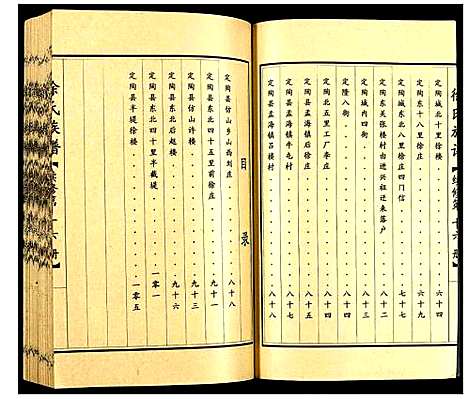 徐氏族谱【续修第十六册】
定陶城北十里徐楼 六十四
定陶东十八里徐庄 六十九
定陶城东北八里徐庄四门信 七十七
定陶东关张楼村由进兴祖迁来落户 八十二
定陶城内四街
定隆八街
定陶北五里工厂李庄 八十四
定陶县孟海镇后徐庄 八十四
定陶县孟海镇牛屯村 八十七
定陶县孟海镇吕楼村 八十八
目录
定陶县仿山乡山西刘庄 八十八
定陶县东北四十五里前徐庄 九十一
定陶县仿山许楼
定陶县东北后赵楼 九十六
定陶县东北四十里半截堤 一零一
定陶县半堤徐楼 一零五
徐氏族谱【续修第十六册】